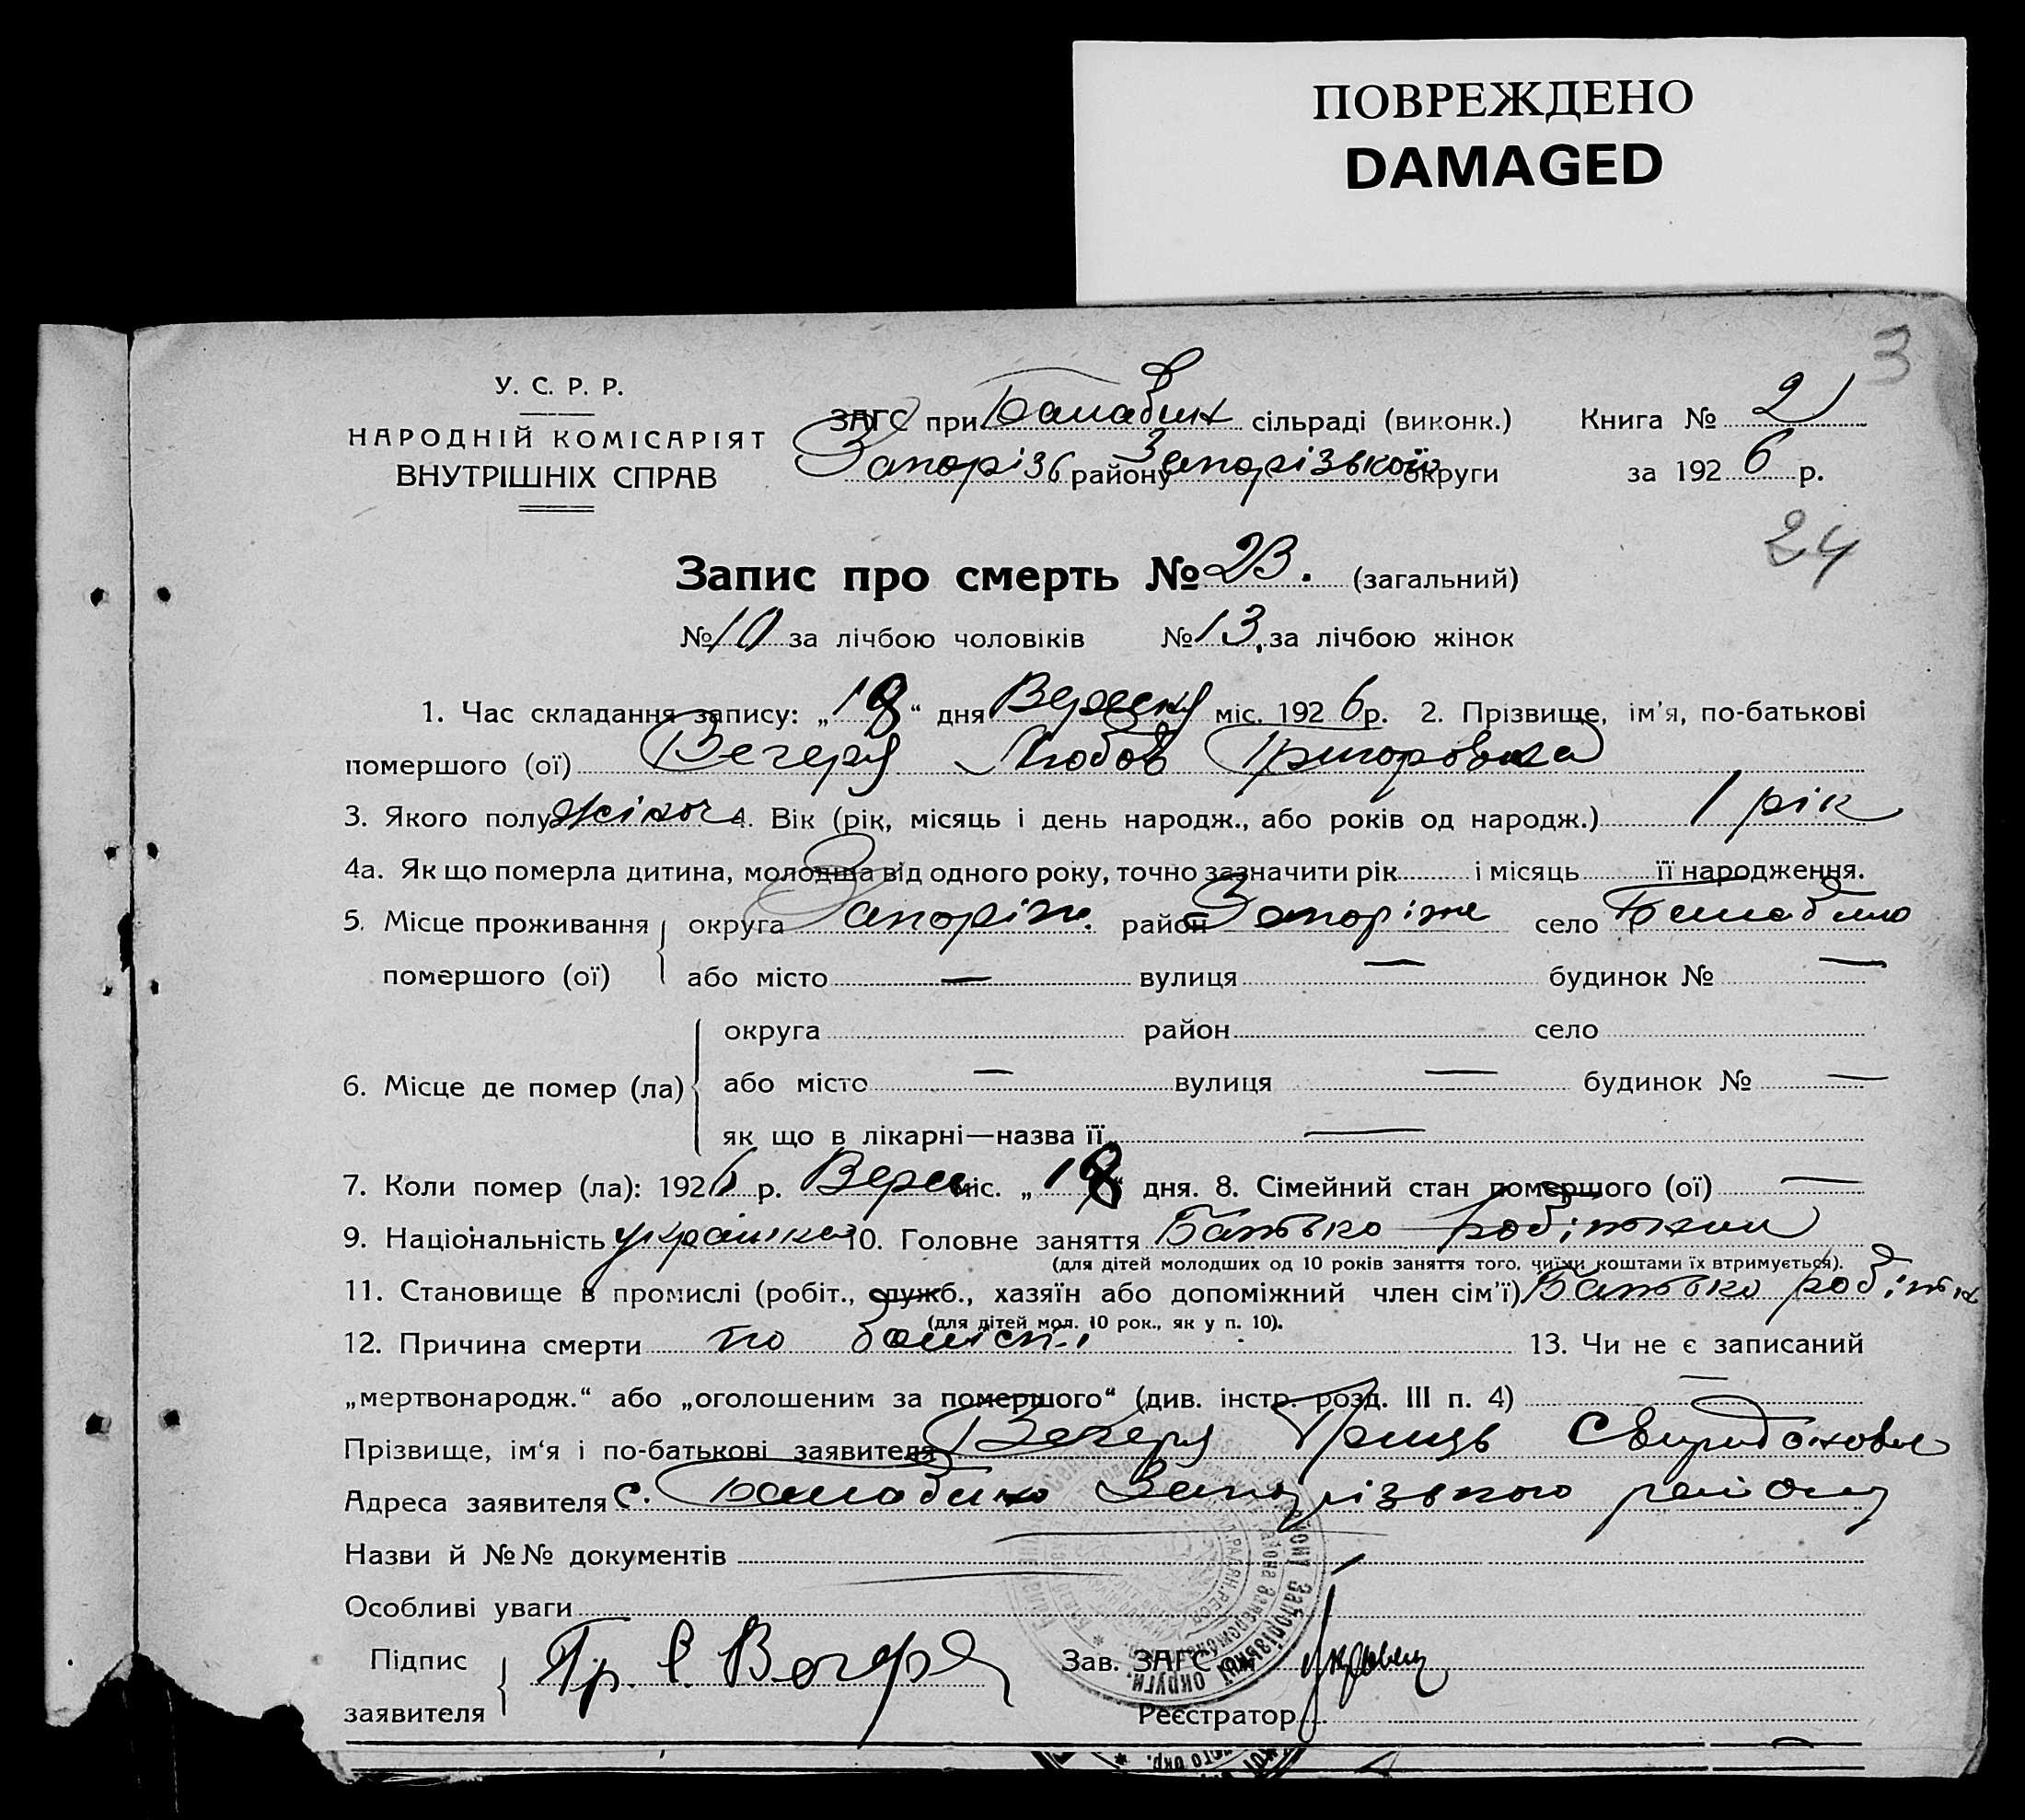 ПОВРЕЖДЕНО
DAMAGED
3
У. С. Р. Р.
НАРОДНІЙ КОМІСАРІЯТ
ВНУТРІШНІХ СПРАВ
ЗАГС при Балабин сільраді (виконк.)
Запоріз району Запорізької округи
Книга № 21
за 1926 р.
24
Запис про смерть № 23. (загальний)
№ 10 за лічбою чоловіків № 13. за лічбою жінок
1. Час складання запису: „18“ дня Вересня міс. 1926 р. 2. Прізвище, ім’я, по-батькові
помершого (ої) Вечеря Любов Григоровна
3. Якого полу жіноч 4. Вік (рік, місяць і день народж., або років од народж.) 1 рік
4а. Як що померла дитина, молодша від одного року, точно зазначити рік і місяць її народження.
5. Місце проживання помершого (ої) округа Запоріж. район Запоріже село Балабино
або місто — вулиця — будинок № —
6. Місце де помер (ла) округа район село
або місто — вулиця — будинок № —
як що в лікарні—назва її —
7. Коли помер (ла): 1926 р. Верес міс. „18“ дня. 8. Сімейний стан помершого (ої) —
9. Національність українка 10. Головне заняття Батько робітник
(для дітей молодших од 10 років заняття того, чиїми коштами їх втримується).
11. Становище в промислі (робіт., служб., хазяїн або допоміжний член сім’ї) Батько робітн
(для дітей мол. 10 рок., як у п. 10).
12. Причина смерти по болісті 13. Чи не є записаний
„мертвонародж.“ або „оголошеним за помершого“ (див. інстр. розд. III п. 4) —
Прізвище, ім‘я і по-батькові заявителя Вечеря Гриць Свиридонович
Адреса заявителя с. Балабино Запорізького району
Назви й №№ документів
Особливі уваги
Підпис заявителя Гр. С. Вечеря
Зав. ЗАГС'ом
Реєстратор